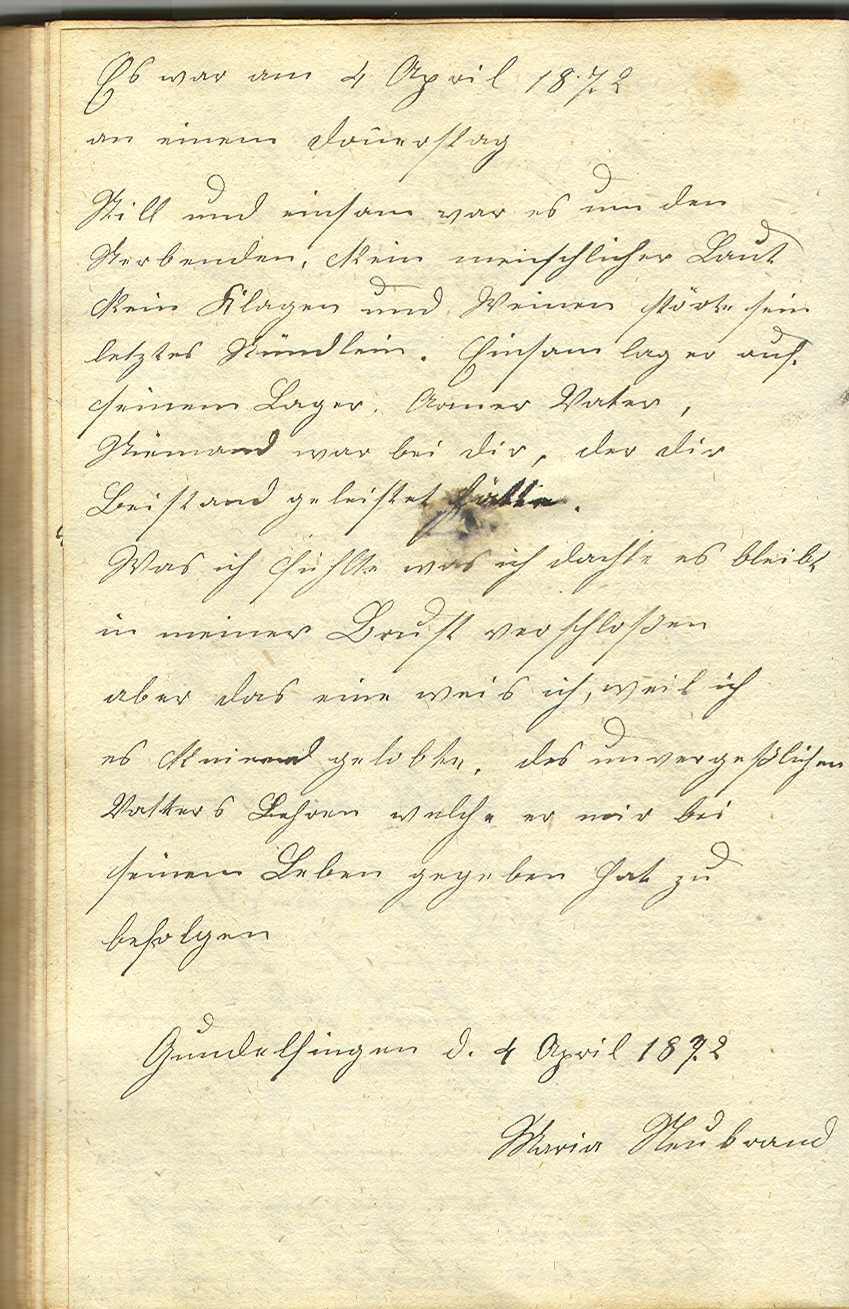 Es war am 4 April 1872
an einem Donnerstag
Still und einsam war es um den
Sterbenden, Kein menschlicher Laut
Kein Klagen und Weinen störte sein
letztes Stündlein. Einsam lag er auf
seinem Lager. Armer Vater,
Niemand war bei dir, der dir
Beistand geleistet hätte.
Was ich fühlte was ich dachte es bleibt
in meiner Brust verschloßen
aber das eine weis ich, weil ich
es Knieend gelobte, des unvergeßlichen
Vatters Lehren welche er mir bei
seinem Leben gegeben hat zu
befolgen
Gundelfingen d. 4 April 1872
Maria Neubrand